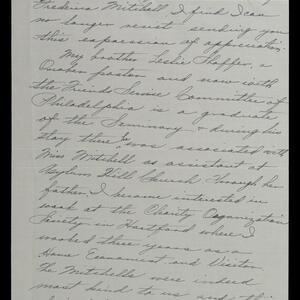 Frederica Mitchell, I find I can
no longer resist sending you
this expression of appreciation.
My brother Leslie Shaffer, a
Quaker pastor and now with
the Friends Service Committee of
Philadelphia is a graduate
of the Seminary & during his
stay there he was associated with
Miss Mitchell as assistant at
Asylum Hill Church. Through her
father, I became interested in
work at the Charity Organization
Society in Hartford where I
worked three years as a
Home Economist and Visitor.
The Mitchells were indeed
most kind to us and